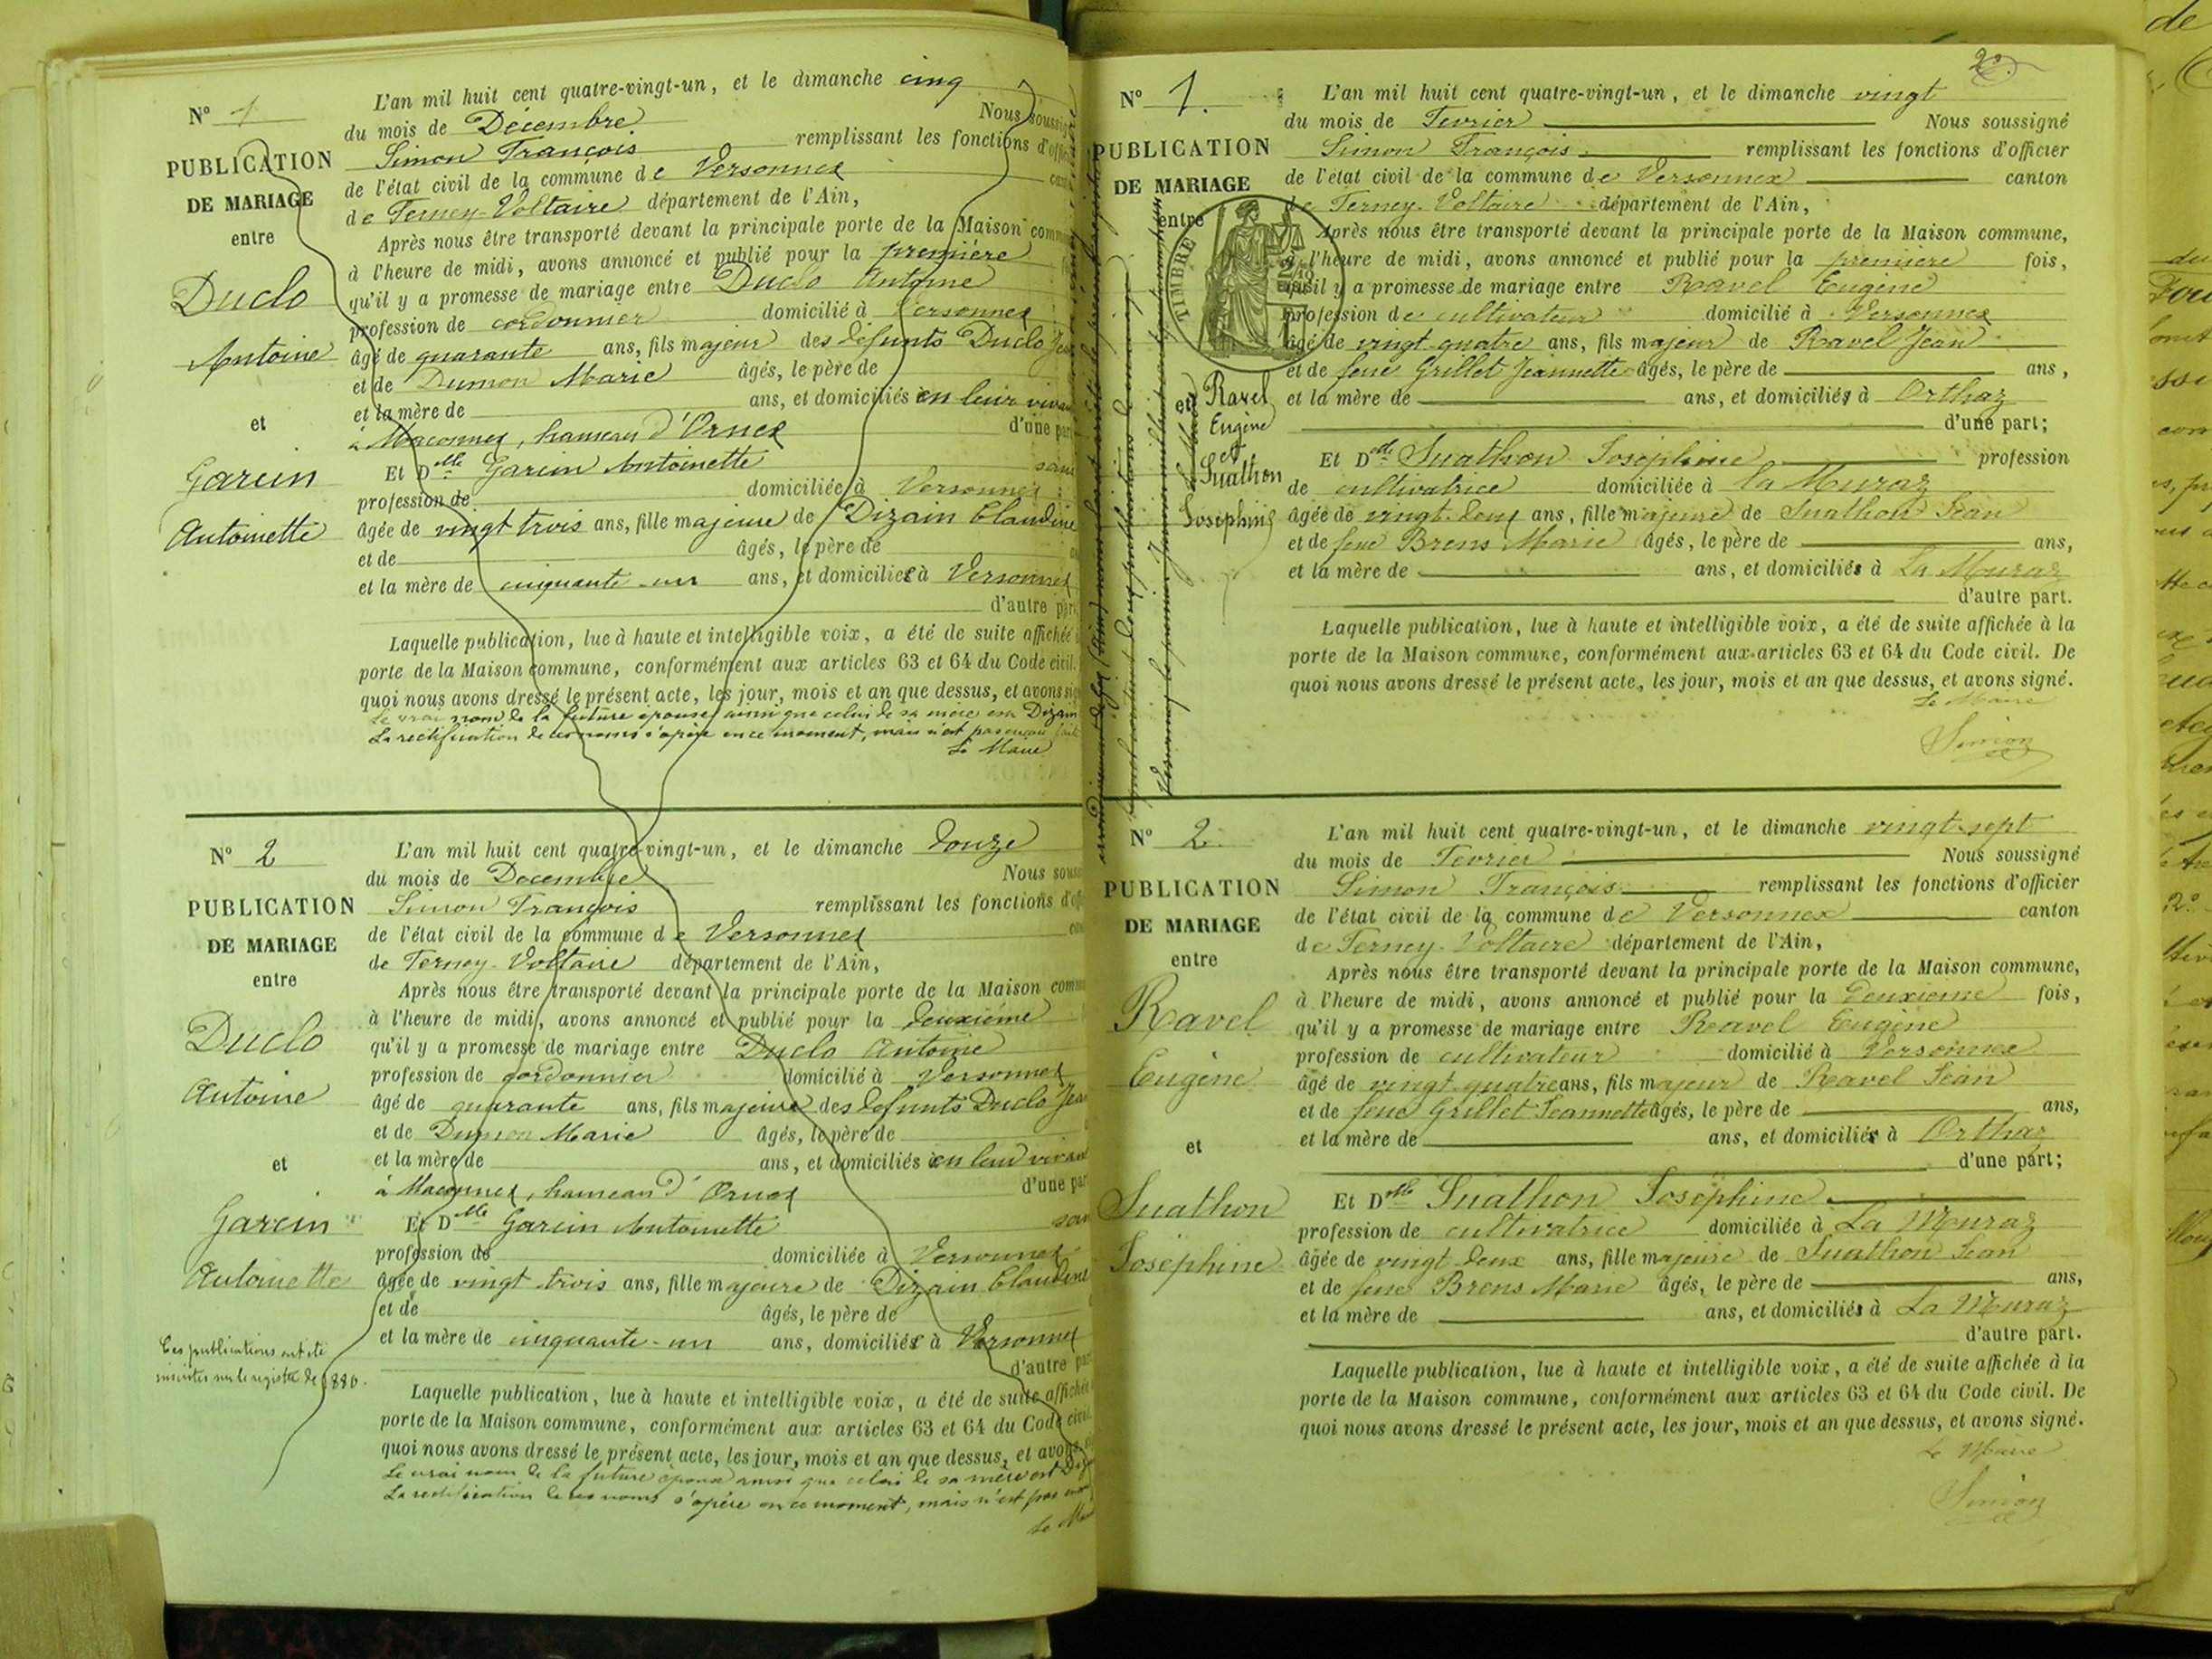 N° 1
L'an mil huit cent quatre-vingt-un, et le dimanche cinq
du mois de Décembre Nous soussig
PUBLICATION
Simon François remplissant les fonctions d'offic
DE MARIAGE
de l'état civil de la commune de Versonnex can
entre
de Ferney-Voltaire département de l'Ain,
Après nous être transporté devant la principale porte de la Maison comm
à l'heure de midi, avons annoncé et publié pour la première
Duclo
qu'il y a promesse de mariage entre Duclo Antoine
profession de cordonnier domicilié à Versonnex
Antoine
âgé de quarante ans, fils majeur des défunts Duclo Jea
et de Dumon Marie âgés, le père de
et la mère de ans, et domiciliés en leur vivan
et
à Maconnex, hameau d'Ornex d'une par
Garcin
Et Dlle Garcin Antoinette sans
profession de domiciliée à Versonnex
Antoinette
âgée de vingt trois ans, fille majeure de Dizain Claudine
et de âgés, le père de
et la mère de cinquante-un ans, et domiciliés à Versonnex
d'autre par
Laquelle publication, lue à haute et intelligible voix, a été de suite affichée à
porte de la Maison commune, conformément aux articles 63 et 64 du Code civil.
quoi nous avons dressé le présent acte, les jour, mois et an que dessus, et avons sig
Le vrai nom de la future épouse ainsi que celui de sa mère est Dizain
La rectification de ces noms s'opère en ce moment, mais n'est pas encore faite
Le Maire
N° 2
L'an mil huit cent quatre-vingt-un, et le dimanche douze
du mois de Decembre Nous sous
PUBLICATION
Simon François remplissant les fonctions d'of
DE MARIAGE
de l'état civil de la commune de Versonnex can
entre
de Ferney-Voltaire département de l'Ain,
Après nous être transporté devant la principale porte de la Maison comm
à l'heure de midi, avons annoncé et publié pour la deuxième
Duclo
qu'il y a promesse de mariage entre Duclo Antoine
profession de cordonnier domicilié à Versonnex
Antoine
âgé de quarante ans, fils majeur des défunts Duclo Jea
et de Dumon Marie âgés, le père de
et la mère de ans, et domiciliés en leur vivan
et
à Maconnex, hameau d'Ornex d'une par
Garcin
Et Dlle Garcin Antoinette san
profession de domiciliée à Versonnex
Antoinette
âgée de vingt trois ans, fille majeure de Dizain Claudine
et de âgés, le père de
et la mère de cinquante-un ans, domiciliés à Versonnex
Ces publications ont été
inscrites sur le registre de 1880.
d'autre par
Laquelle publication, lue à haute et intelligible voix, a été de suite affichée
porte de la Maison commune, conformément aux articles 63 et 64 du Code civil.
quoi nous avons dressé le présent acte, les jour, mois et an que dessus, et avons
Le vrai nom de la future épouse ainsi que celui de sa mère est Diz
La rectification de ces noms s'opère en ce moment, mais n'est pas enco
Le Mai
2°.
N° 1.
L'an mil huit cent quatre-vingt-un, et le dimanche vingt
du mois de Fevrier Nous soussigné
PUBLICATION
Simon François remplissant les fonctions d'officier
DE MARIAGE
de l'état civil de la commune de Versonnex canton
entre
de Ferney-Voltaire département de l'Ain,
TIMBRE
Après nous être transporté devant la principale porte de la Maison commune,
à l'heure de midi, avons annoncé et publié pour la première fois,
qu'il y a promesse de mariage entre Ravel Eugène
profession de cultivateur domicilié à Versonnex
âgé de vingt-quatre ans, fils majeur de Ravel Jean
et de feue Grillet Jeannette âgés, le père de ans,
et
Ravel
Eugène
et
Suathon
Joséphine
et la mère de ans, et domiciliés à Orthaz
d'une part;
Et Dlle Suathon Joséphine profession
de cultivatrice domiciliée à la Muraz
âgée de vingt-deux ans, fille majeure de Suathon Jean
et de feue Brens Marie âgés, le père de ans,
et la mère de ans, et domiciliés à La Muraz
d'autre part.
Laquelle publication, lue à haute et intelligible voix, a été de suite affichée à la
porte de la Maison commune, conformément aux articles 63 et 64 du Code civil. De
quoi nous avons dressé le présent acte, les jour, mois et an que dessus, et avons signé.
Le Maire
Simon
N° 2.
L'an mil huit cent quatre-vingt-un, et le dimanche vingt-sept
du mois de Fevrier Nous soussigné
PUBLICATION
Simon François remplissant les fonctions d'officier
DE MARIAGE
de l'état civil de la commune de Versonnex canton
entre
de Ferney-Voltaire département de l'Ain,
Après nous être transporté devant la principale porte de la Maison commune,
à l'heure de midi, avons annoncé et publié pour la deuxieme fois,
Ravel
qu'il y a promesse de mariage entre Ravel Eugène
profession de cultivateur domicilié à Versonnex
Eugène
âgé de vingt-quatre ans, fils majeur de Ravel Jean
et de feue Grillet Jeannette âgés, le père de ans,
et la mère de ans, et domiciliés à Orthaz
et
d'une part;
Suathon
Et Dlle Suathon Joséphine
profession de cultivatrice domiciliée à La Muraz
Joséphine
âgée de vingt deux ans, fille majeure de Suathon Jean
et de feue Brens Marie âgés, le père de ans,
et la mère de ans, et domiciliés à La Muraz
d'autre part.
Laquelle publication, lue à haute et intelligible voix, a été de suite affichée à la
porte de la Maison commune, conformément aux articles 63 et 64 du Code civil. De
quoi nous avons dressé le présent acte, les jour, mois et an que dessus, et avons signé.
Le Maire
Simon